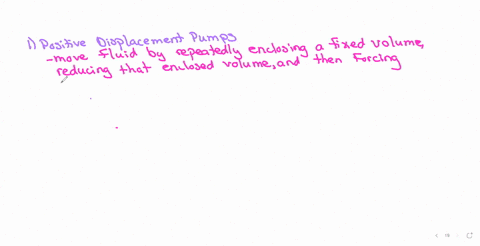 1) Positive Displacement Pumps
-move fluid by repeatedly enclosing a fixed volume,
reducing that enclosed volume, and then forcing